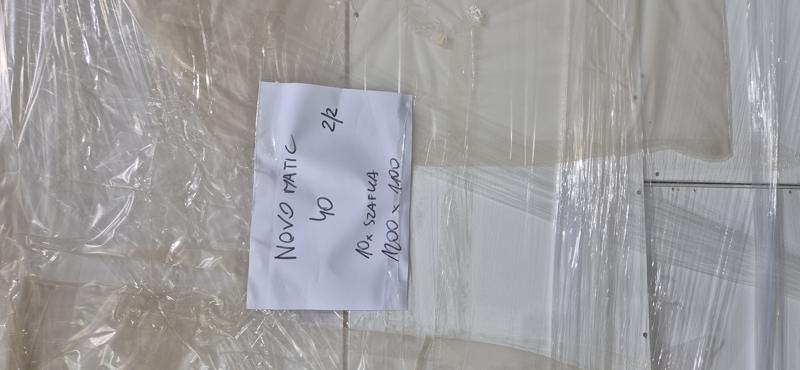 NOVO MATIC
40 2/2
10x SZAFKA
1200 x 1100